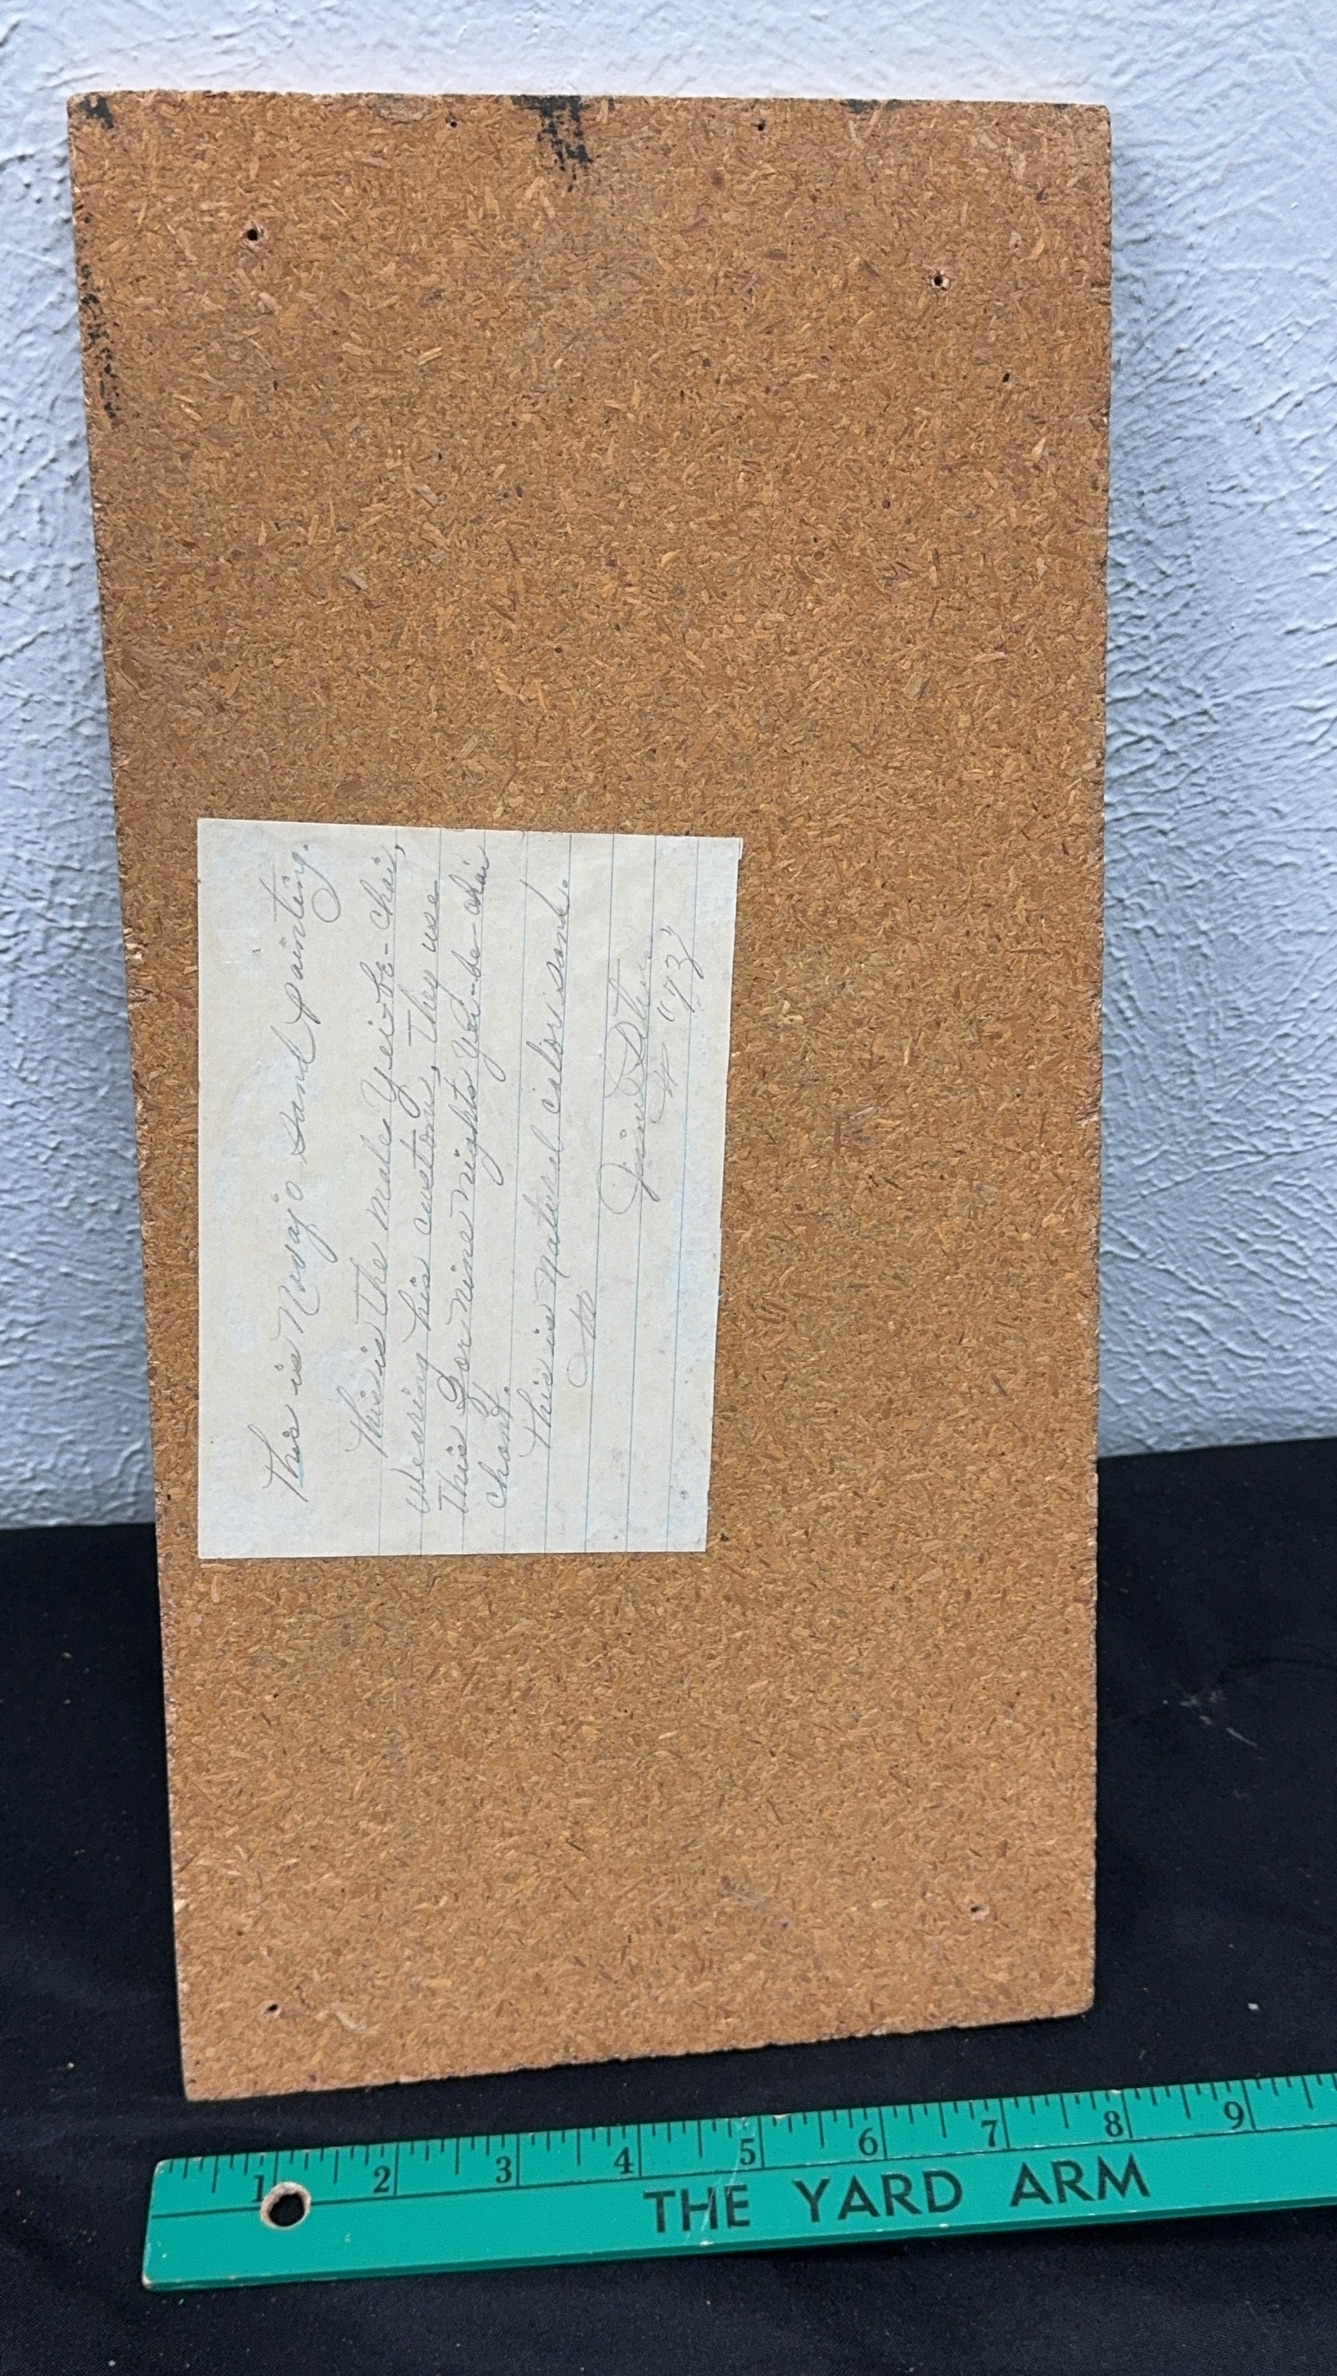 This is Navajo sand painting.
This is the male Yei-be-chai,
wearing his custom, they use
This for nine nights Yei-be-chai
chant.
This is natural color sand.
"73"
1 2 3 4 5 6 7 8 9
THE YARD ARM